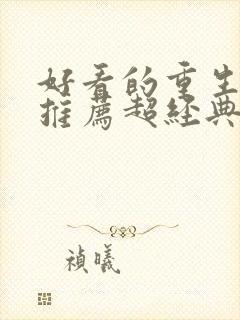 好看的重生
推薦超經典
禎曦